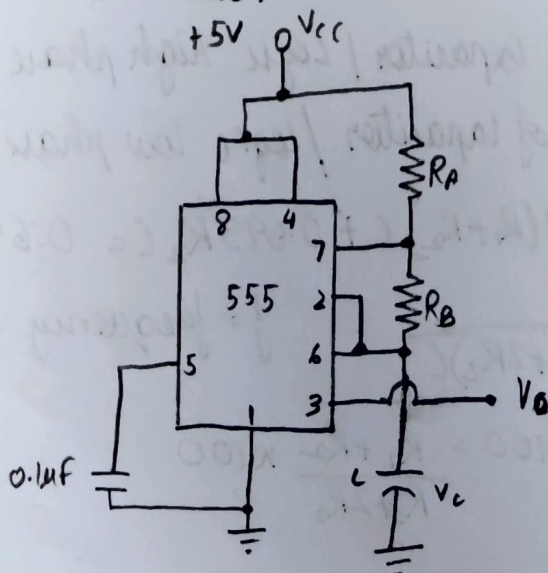 +5V Vcc
RA
8 4
7
555
2
RB
6
5
3 Vo
1
0.1µF
C Vc